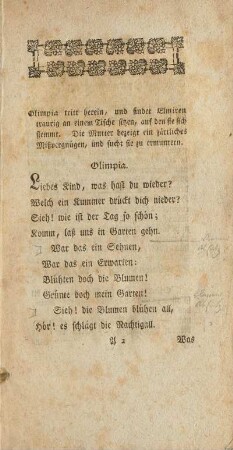 Olimpia tritt herein, und findet Elmiren
traurig an einem Tische sitzen, auf den sie sich
stemmt. Die Mutter bezeigt ein zärtliches
Mißvergnügen, und sucht sie zu ermuntern.
Olimpia.
Liebes Kind, was hast du wieder?
Welch ein Kummer drückt dich nieder?
Sieh! wie ist der Tag so schön;
Komm, laß uns in Garten gehn.
War das ein Sehnen,
War das ein Erwarten:
Blühten doch die Blumen!
Grünte doch mein Garten!
Sieh! die Blumen blühen all,
Hör! es schlägt die Nachtigall.
A 2 Was